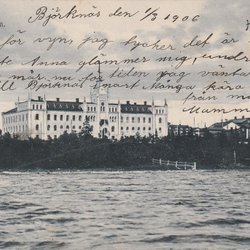 n.
Björknäs den 1/3 1906
för vyn, jag tycker det är
Anna glömmer mig,
när nu för tiden jag vänta
Björknäs snart Många kära
från m
Mamma